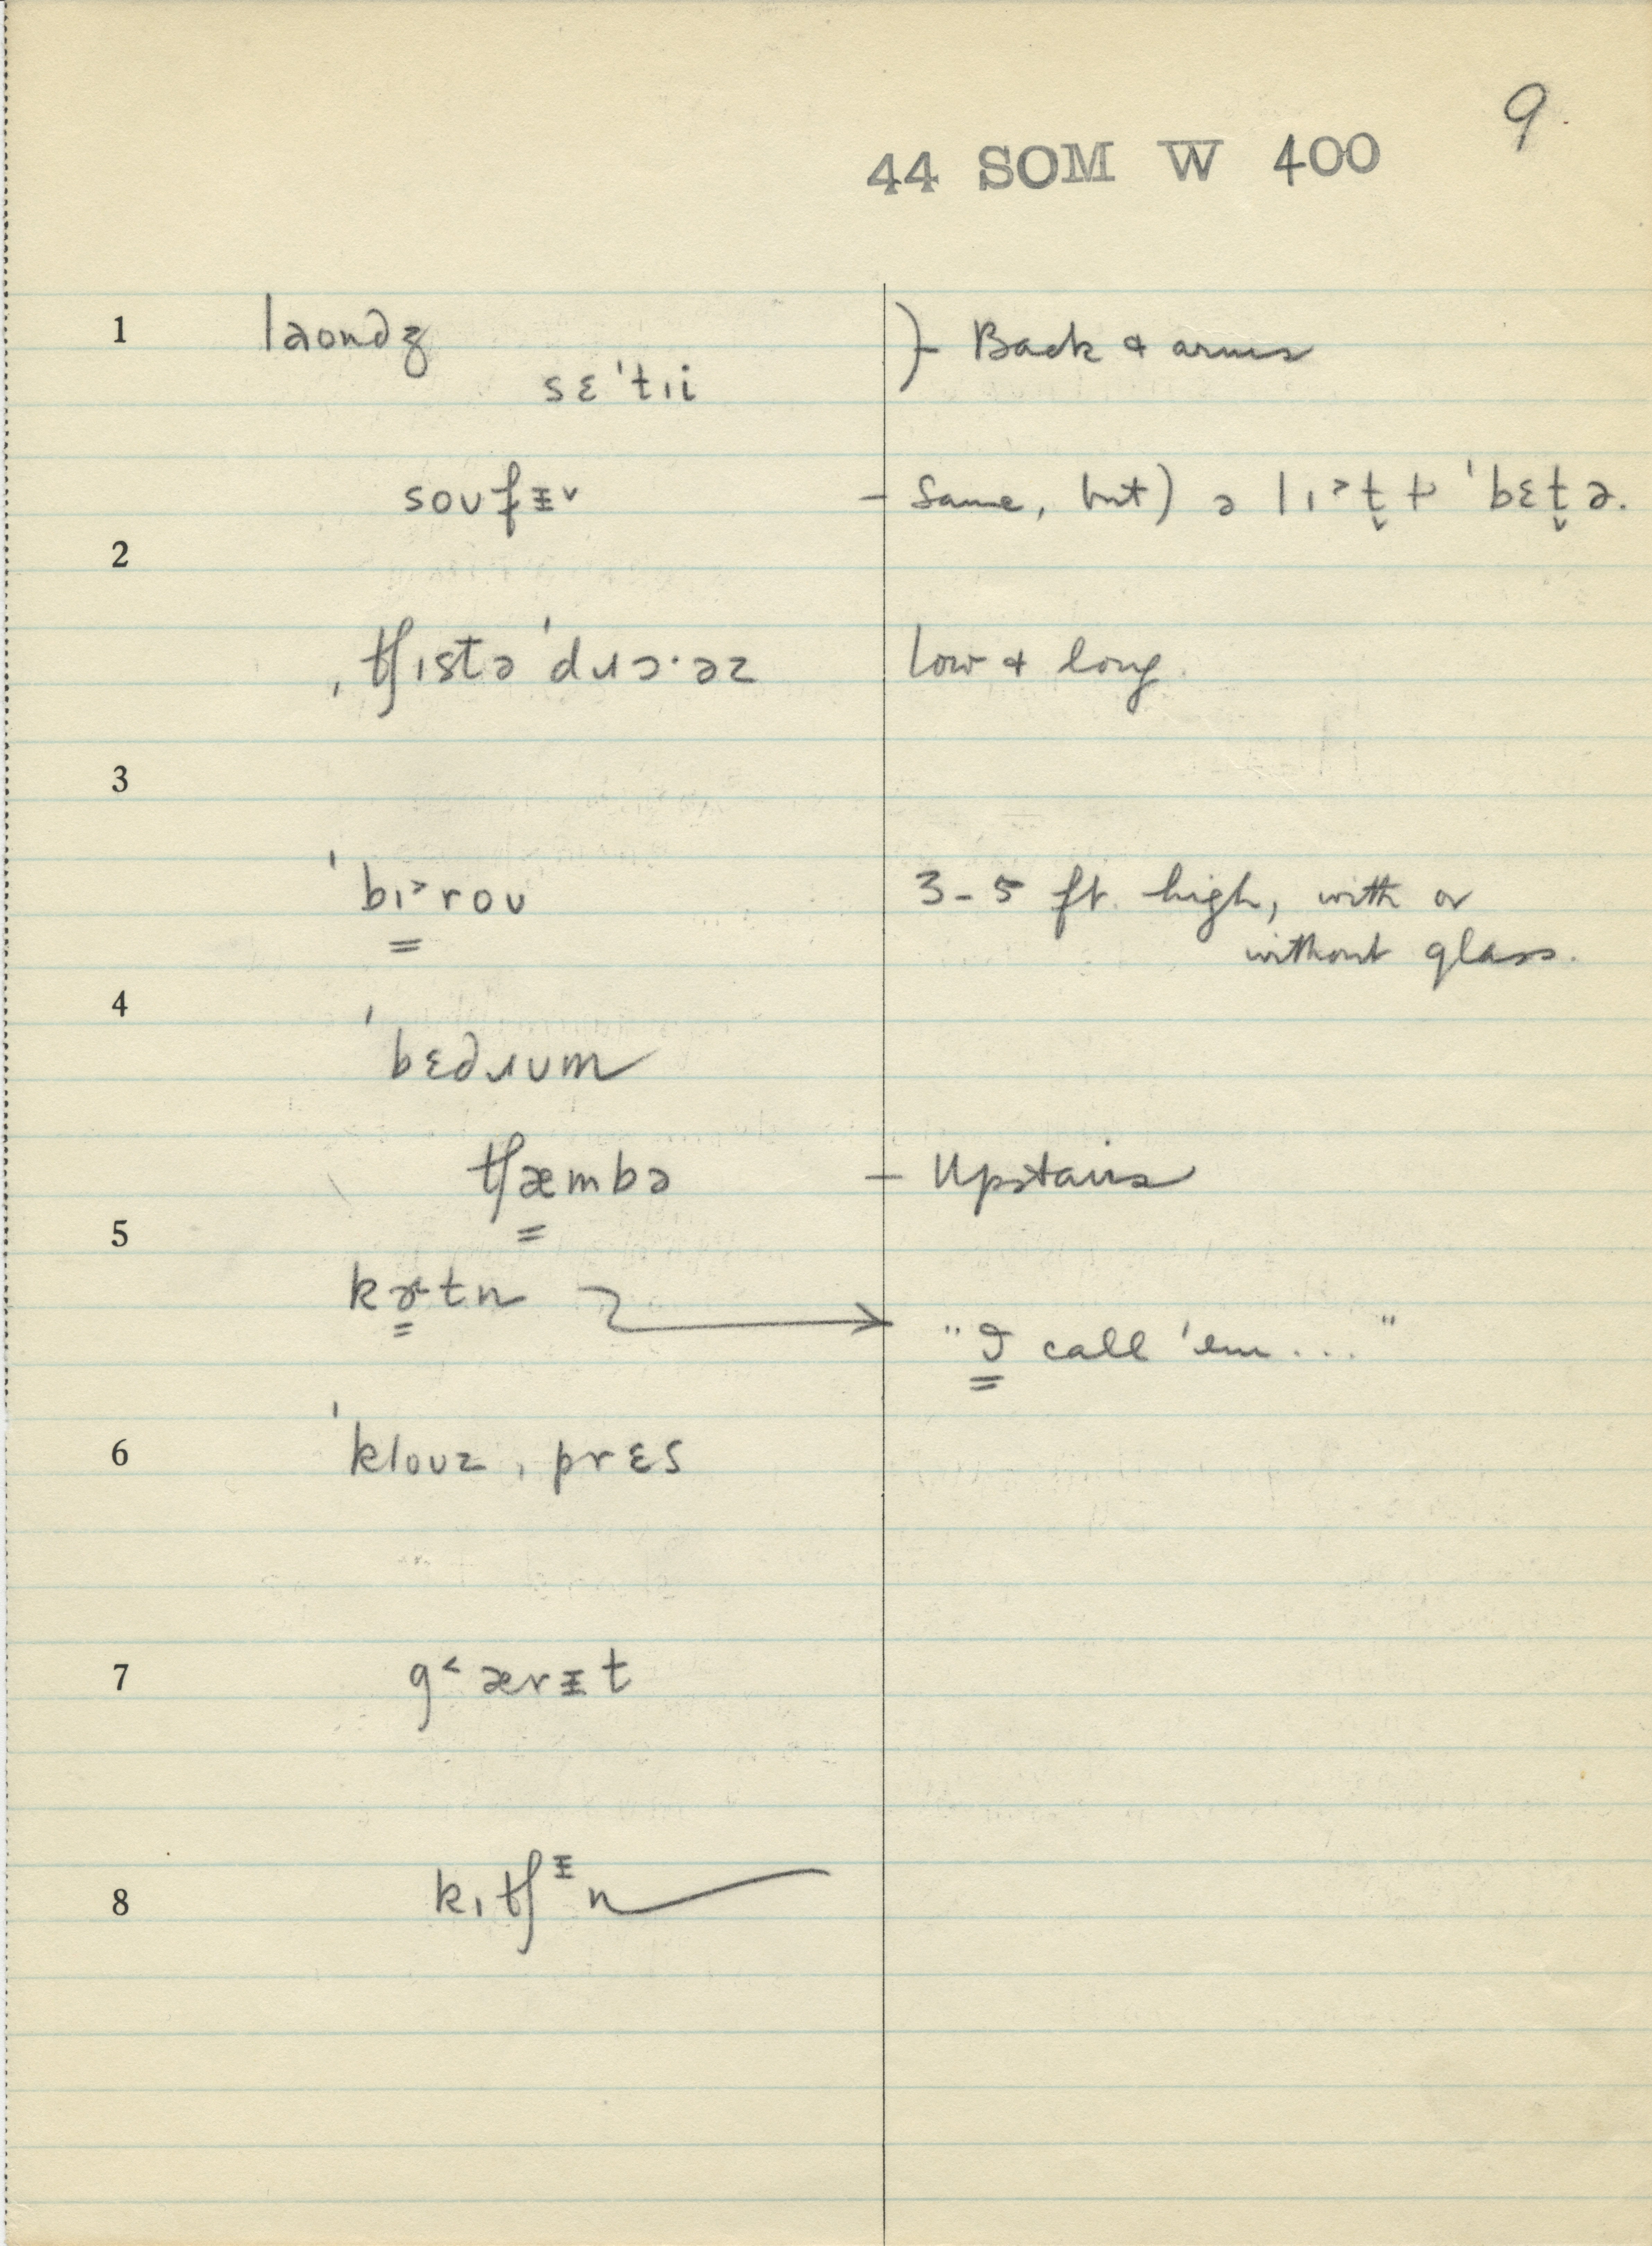 9.
44 SOM W 400
1 laondʒ }- Back & arms
sɛˈtɪi
soʊfᵻ˅ - Same, but) ə lɪ˃t̬ ɫ ˈbɛt̬ə.
2
ˌtʃɪstəˈdɹɔ·əz low & long.
3
ˈbɪ˃roʊ 3-5 ft. high, with or
without glass.
4
ˈbɛdɹʊm
tʃæmbə - Upstairs
5
kɚtn "I call 'em..."
6 ˈkloʊzˌprɛs
7 g˂ærᵻt
8 kɪtʃᵻn